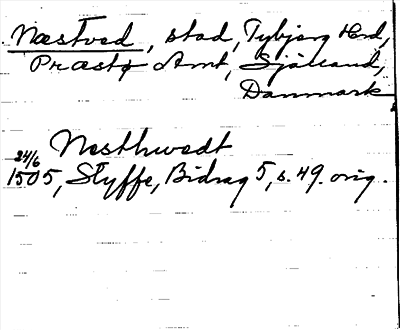 Næstved, stad, Tybjerg Hrd,
Præstø Amt, Själland,
Danmark
Nesthwedt
24/6
1505, Styffe, Bidrag 5, s. 49. orig.